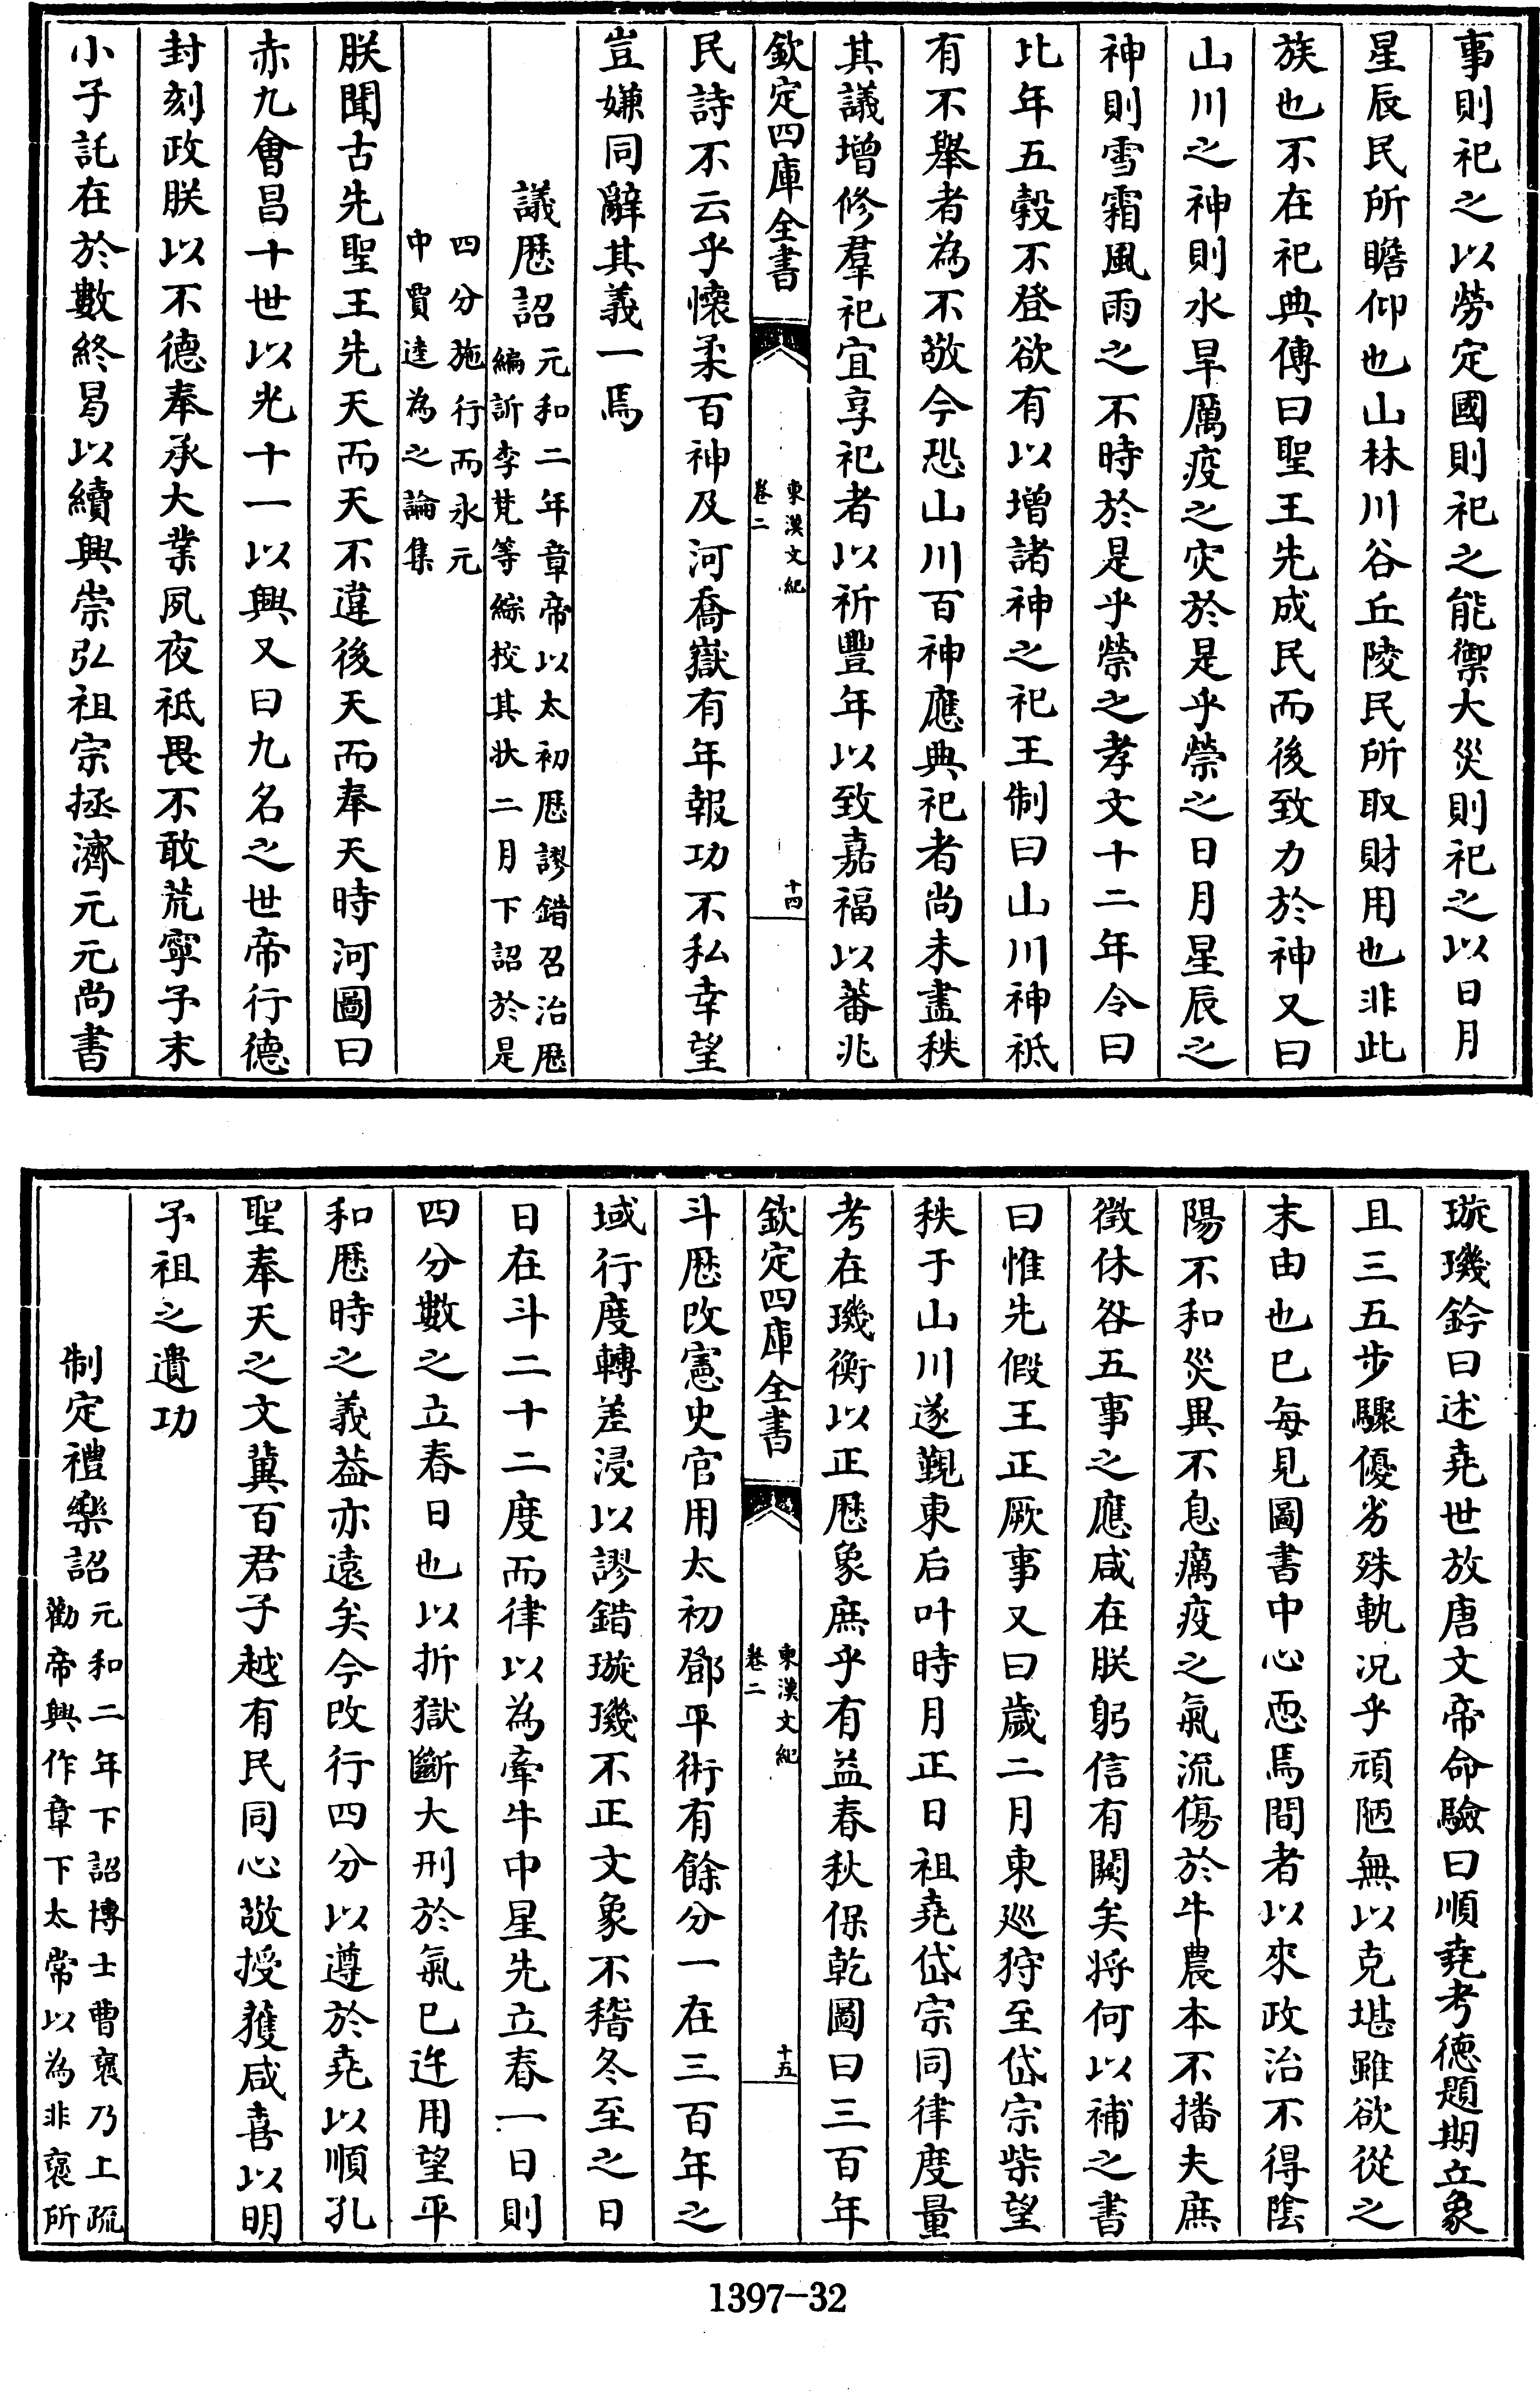 事則祀之以勞定國則祀之能禦大災則祀之以日月
星辰民所瞻仰也山林川谷丘陵民所取財用也非此
族也不在祀典傳曰聖王先成民而後致力於神又曰
山川之神則水旱厲疫之灾於是乎禜之日月星辰之
神則雪霜風雨之不時於是乎禜之孝文十二年令曰
比年五穀不登欲有以增諸神之祀王制曰山川神祗
有不舉者為不敬今恐山川百神應典祀者尚未盡秩
其議增修羣祀宜享祀者以祈豐年以致嘉福以蕃兆
欽定四庫全書
東漢文紀
卷二
十四
民詩不云乎懷柔百神及河喬嶽有年報功不私幸望
豈嫌同辭其義一焉
議厯詔
元和二年章帝以太初厯謬錯召治厯
編訢李梵等綜挍其狀二月下詔於是
四分施行而永元
中賈逵為之論集
朕聞古先聖王先天而天不違後天而奉天時河圖曰
赤九會昌十世以光十一以興又曰九名之世帝行德
封刻政朕以不德奉承大業夙夜祗畏不敢荒寧予末
小子託在於數終曷以續興崇弘祖宗拯濟元元尚書
璇璣鈐曰述堯世放唐文帝命驗曰順堯考德題期立象
且三五步驟優劣殊軌況乎頑陋無以克堪雖欲從之
末由也已每見圖書中心恧焉間者以來政治不得陰
陽不和災異不息癘疫之氣流傷於牛農本不播夫庶
徵休咎五事之應咸在朕躬信有闕矣將何以補之書
曰惟先假王正厥事又曰歲二月東廵狩至岱宗柴望
秩于山川遂覲東后叶時月正日祖堯岱宗同律度量
考在璣衡以正厯象庶乎有益春秋保乾圖曰三百年
欽定四庫全書
東漢文紀
卷二
十五
斗厯改憲史官用太初鄧平術有餘分一在三百年之
域行度轉差浸以謬錯璇璣不正文象不稽冬至之日
日在斗二十二度而律以為牽牛中星先立春一日則
四分數之立春日也以折獄斷大刑於氣已迕用望平
和厯時之義葢亦遠矣今改行四分以遵於堯以順孔
聖奉天之文冀百君子越有民同心敬授獲咸喜以明
予祖之遺功
制定禮樂詔
元和二年下詔博士曹褒乃上疏
勸帝興作章下太常以為非褒所
1397-32